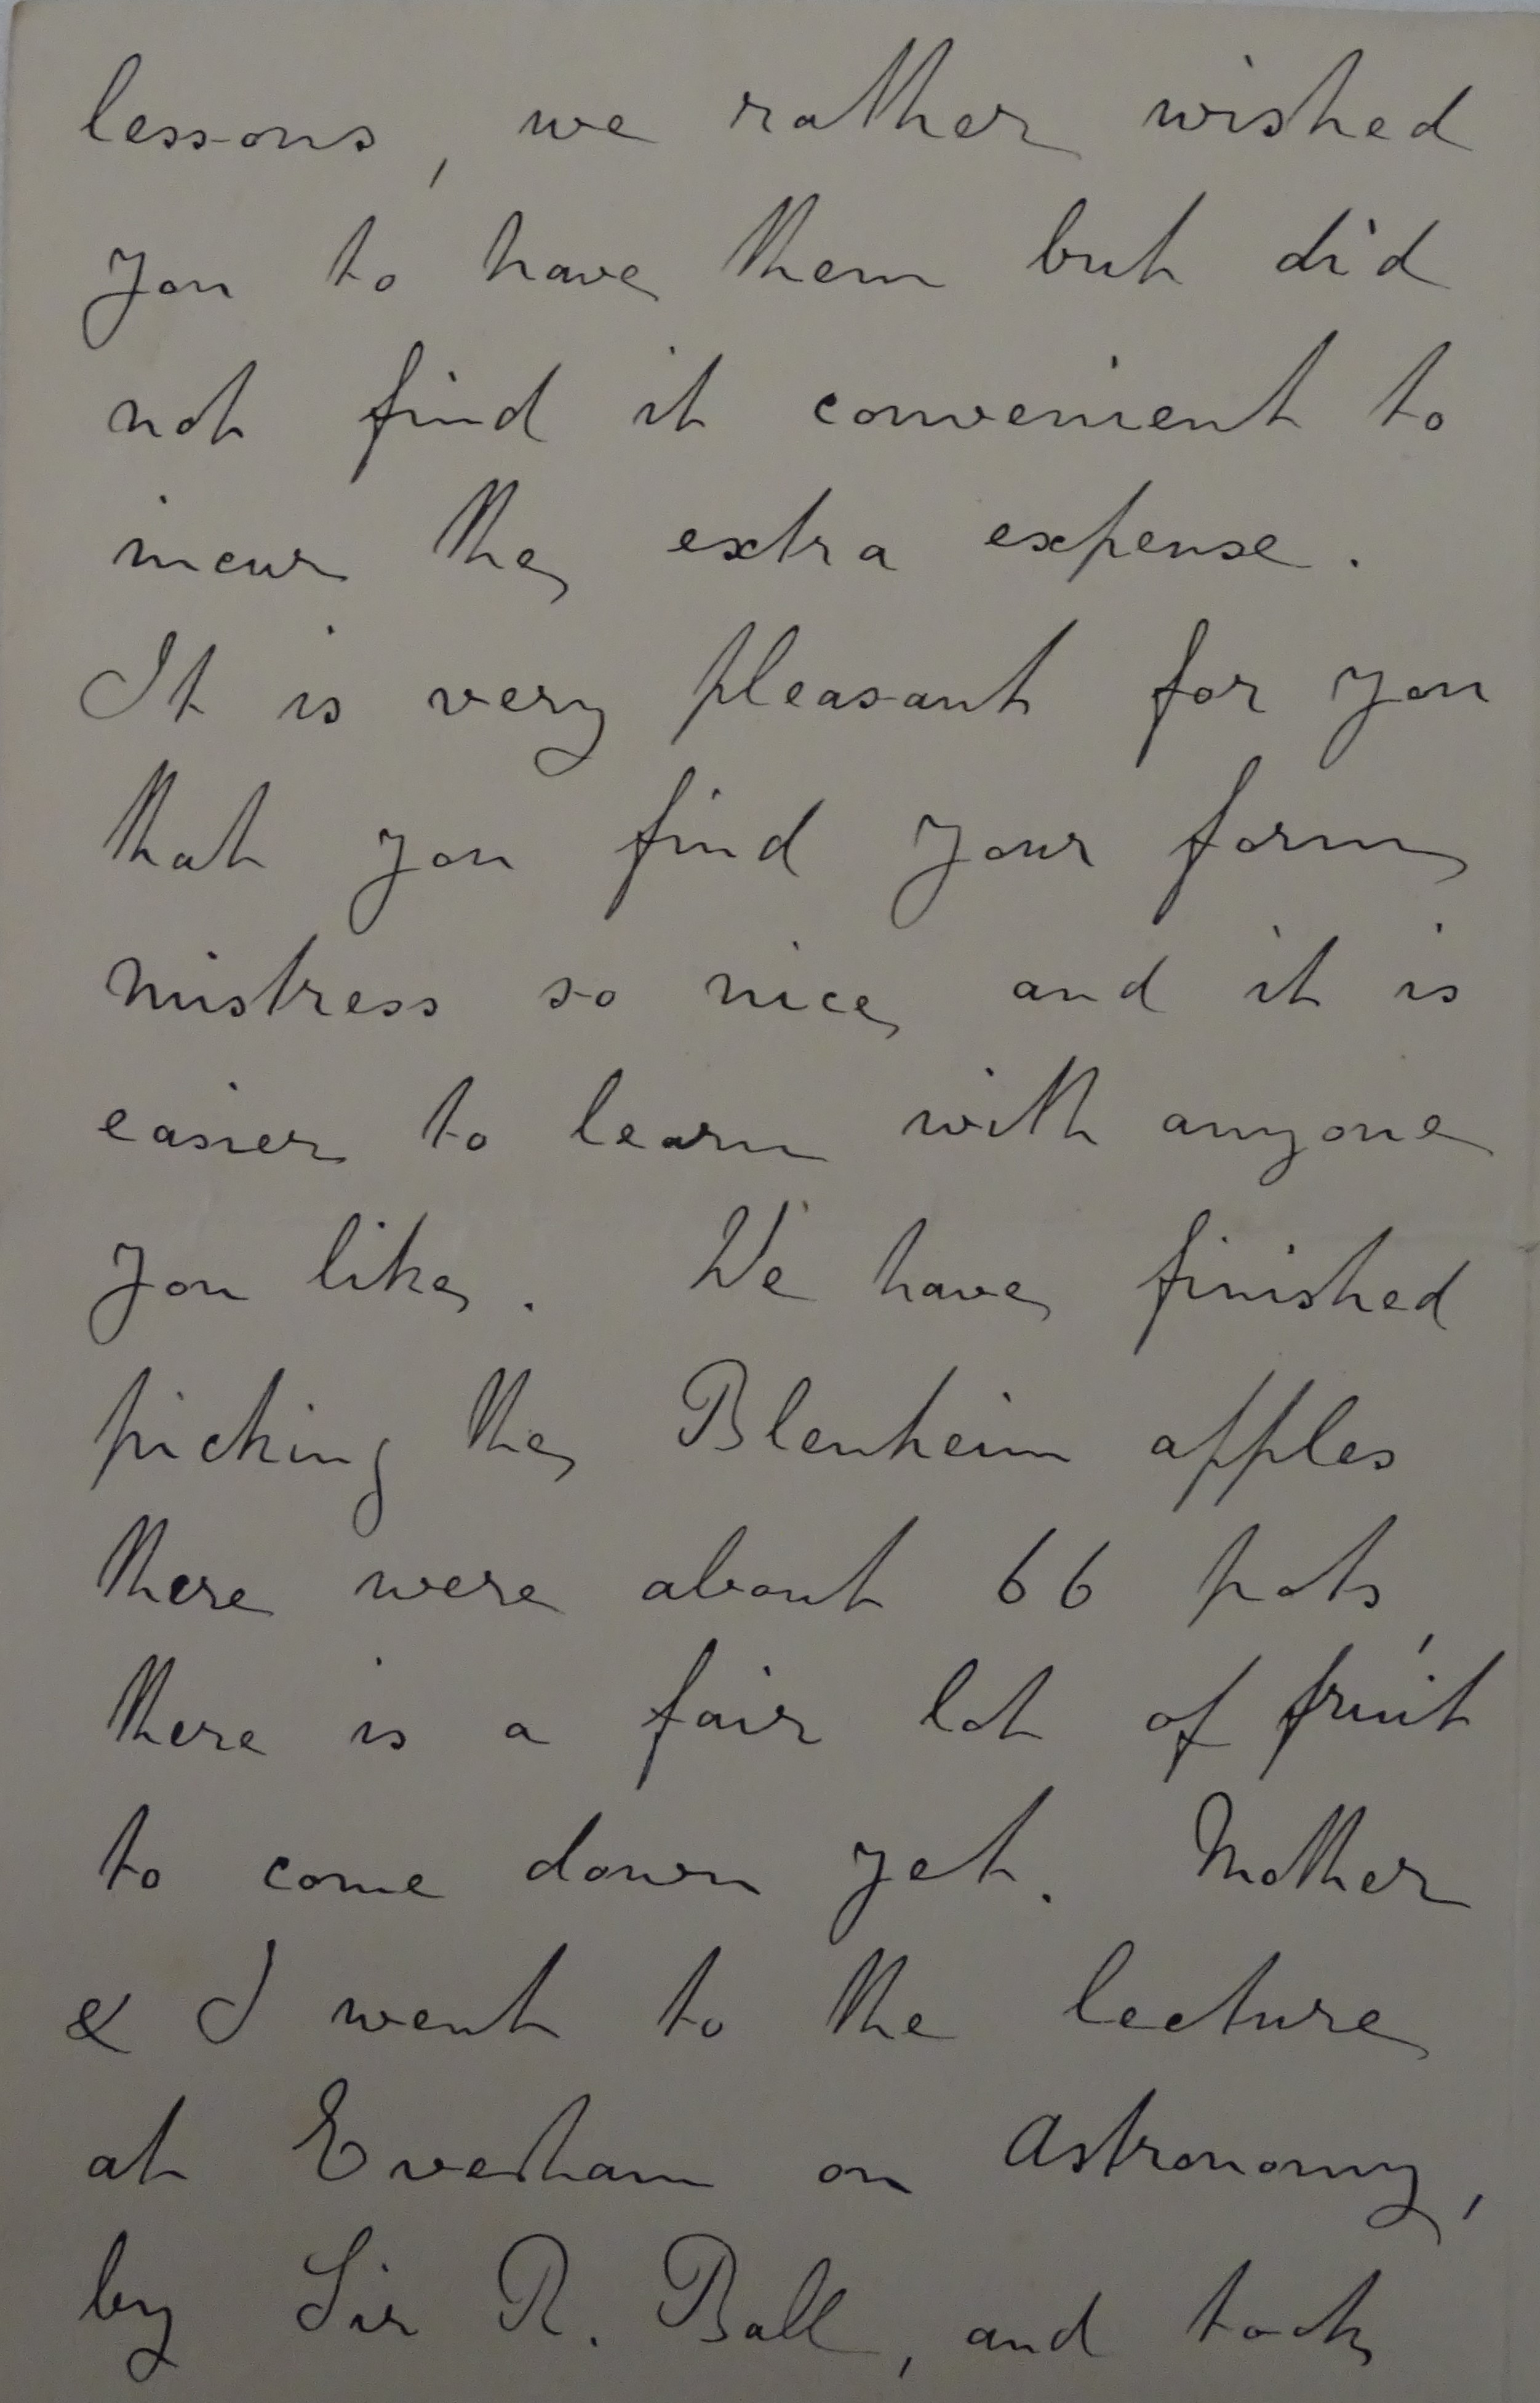 lessons, we rather wished
you to have them but did
not find it convenient to
incur the extra expense.
It is very pleasant for you
that you find your form
mistress so nice and it is
easier to learn with anyone
you like. We have finished
picking the Blenheim apples
there were about 66 pots,
there is a fair lot of fruit
to come down yet. Mother
& I went to the lecture
at Evesham on Astronomy,
by Sir R. Ball, and took